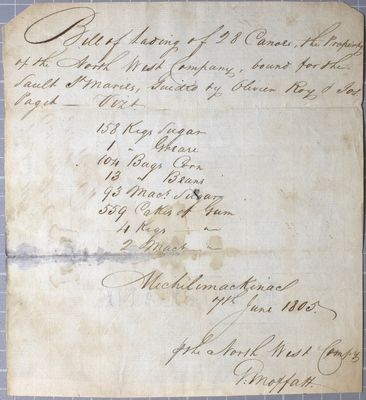 Bill of Lading of 28 Canoes, the Property
of the North West Company, bound for the
Sault St Maries, Guided by Olivier Roy & Jos
Paget — Vizt
158 Kegs Sugar
1 " Grease
104 Bags Corn
13 " Beans
93 Macks Sugar
559 Cakes of Gum
4 Kegs "
2 Macks "
Michilimackinac
7th June 1805.
for the North West Compy
D. Moffatt.